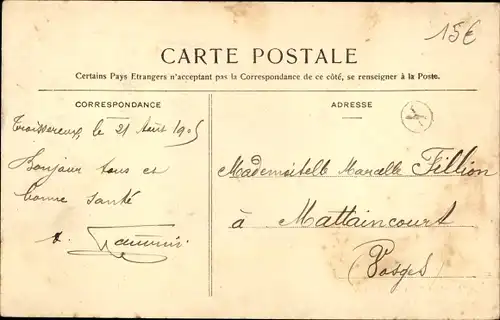 15€
CARTE POSTALE
Certains Pays Etrangers n'acceptant pas la Correspondance de ce côté, se renseigner à la Poste.
CORRESPONDANCE
Troissereux le 21 Août 1905
Bonjour tous et
bonne santé
ADRESSE
Mademoiselle Marcelle Fillion
à Mattaincourt
(Vosges)